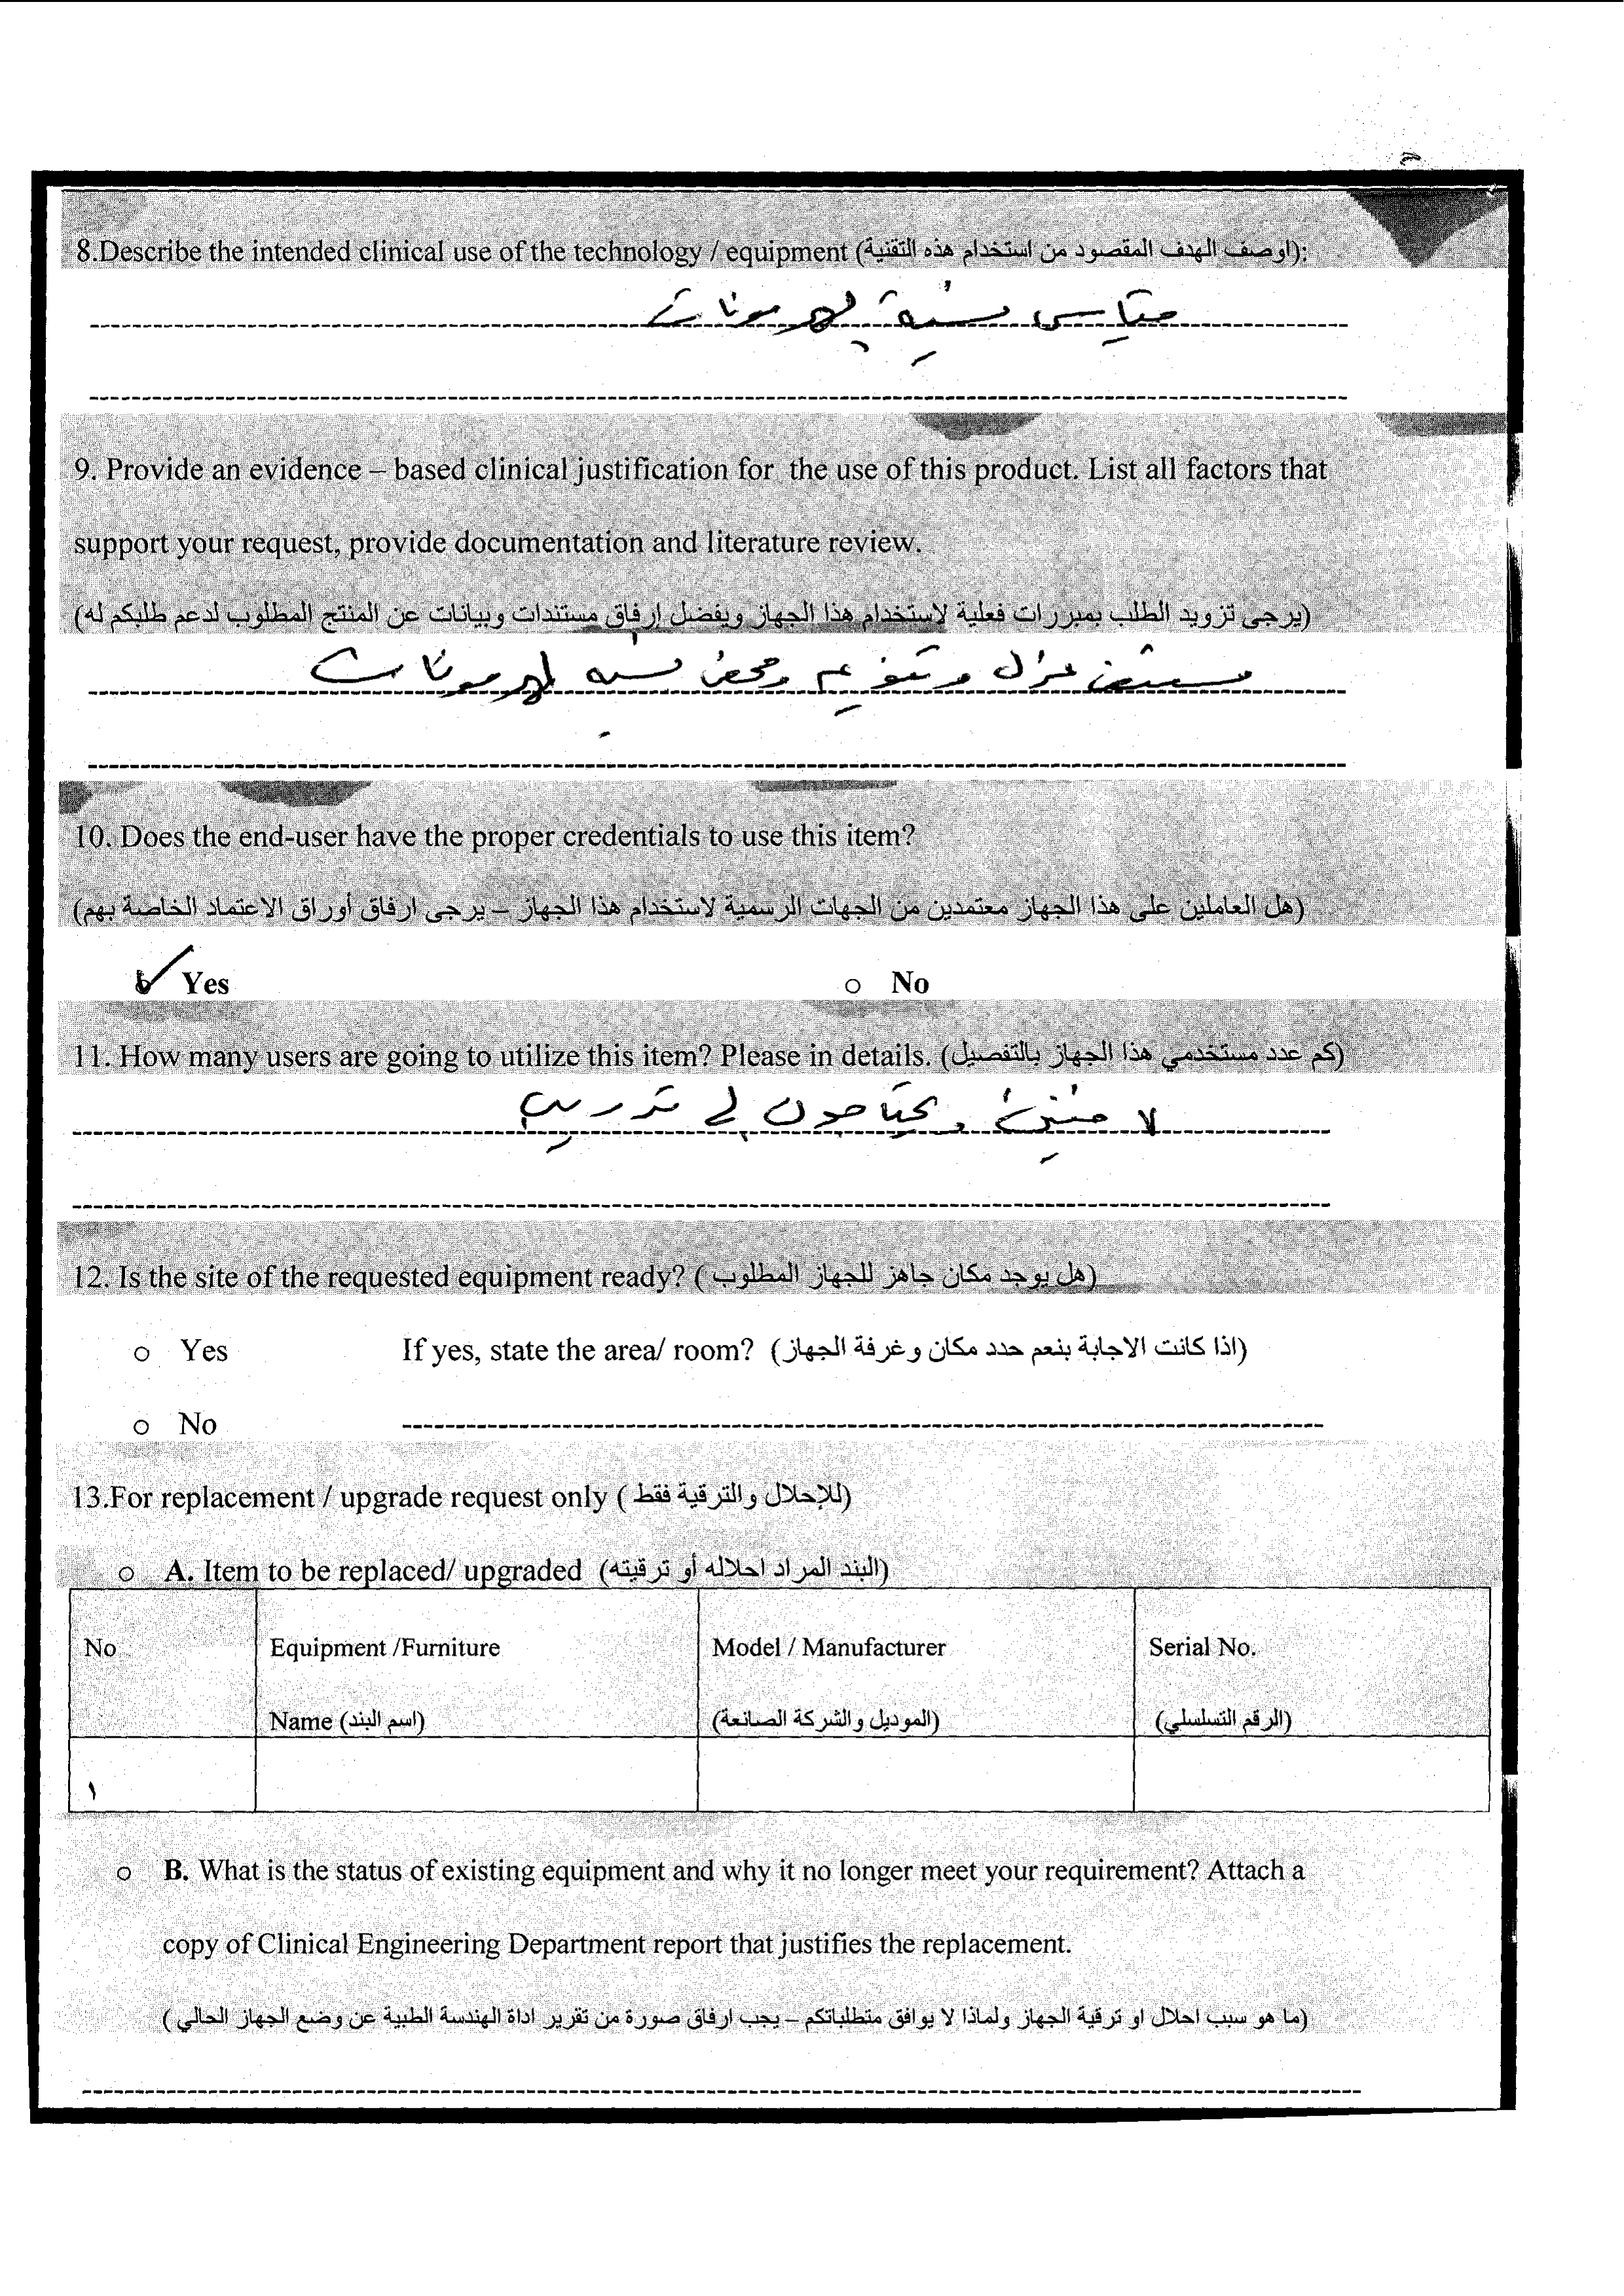 8.Describe the intended clinical use of the technology / equipment (اوصف الهدف المقصود من استخدام هذه التقنية):
قياس نسبة الهرمونات
9. Provide an evidence – based clinical justification for the use of this product. List all factors that
support your request, provide documentation and literature review.
(يرجى تزويد الطلب بمبررات فعلية لاستخدام هذا الجهاز ويفضل إرفاق مستندات وبيانات عن المنتج المطلوب لدعم طلبكم له)
عزل نسبة الهرمونات
10. Does the end-user have the proper credentials to use this item?
(هل العاملين على هذا الجهاز معتمدين من الجهات الرسمية لاستخدام هذا الجهاز – يرجى ارفاق أوراق الاعتماد الخاصة بهم)
✓ Yes o No
11. How many users are going to utilize this item? Please in details. (كم عدد مستخدمي هذا الجهاز بالتفصيل)
يحتاجون تدريب
12. Is the site of the requested equipment ready? (هل يوجد مكان جاهز للجهاز المطلوب)
o Yes If yes, state the area/ room? (اذا كانت الاجابة بنعم حدد مكان وغرفة الجهاز)
o No
13.For replacement / upgrade request only (للإحلال والترقية فقط)
o A. Item to be replaced/ upgraded (البند المراد احلاله أو ترقيته)
No Equipment /Furniture Model / Manufacturer Serial No.
Name (اسم البند) (الموديل والشركة الصانعة) (الرقم التسلسلي)
١
o B. What is the status of existing equipment and why it no longer meet your requirement? Attach a
copy of Clinical Engineering Department report that justifies the replacement.
(ما هو سبب احلال او ترقية الجهاز ولماذا لا يوافق متطلباتكم – يجب ارفاق صورة من تقرير اداة الهندسة الطبية عن وضع الجهاز الحالي)